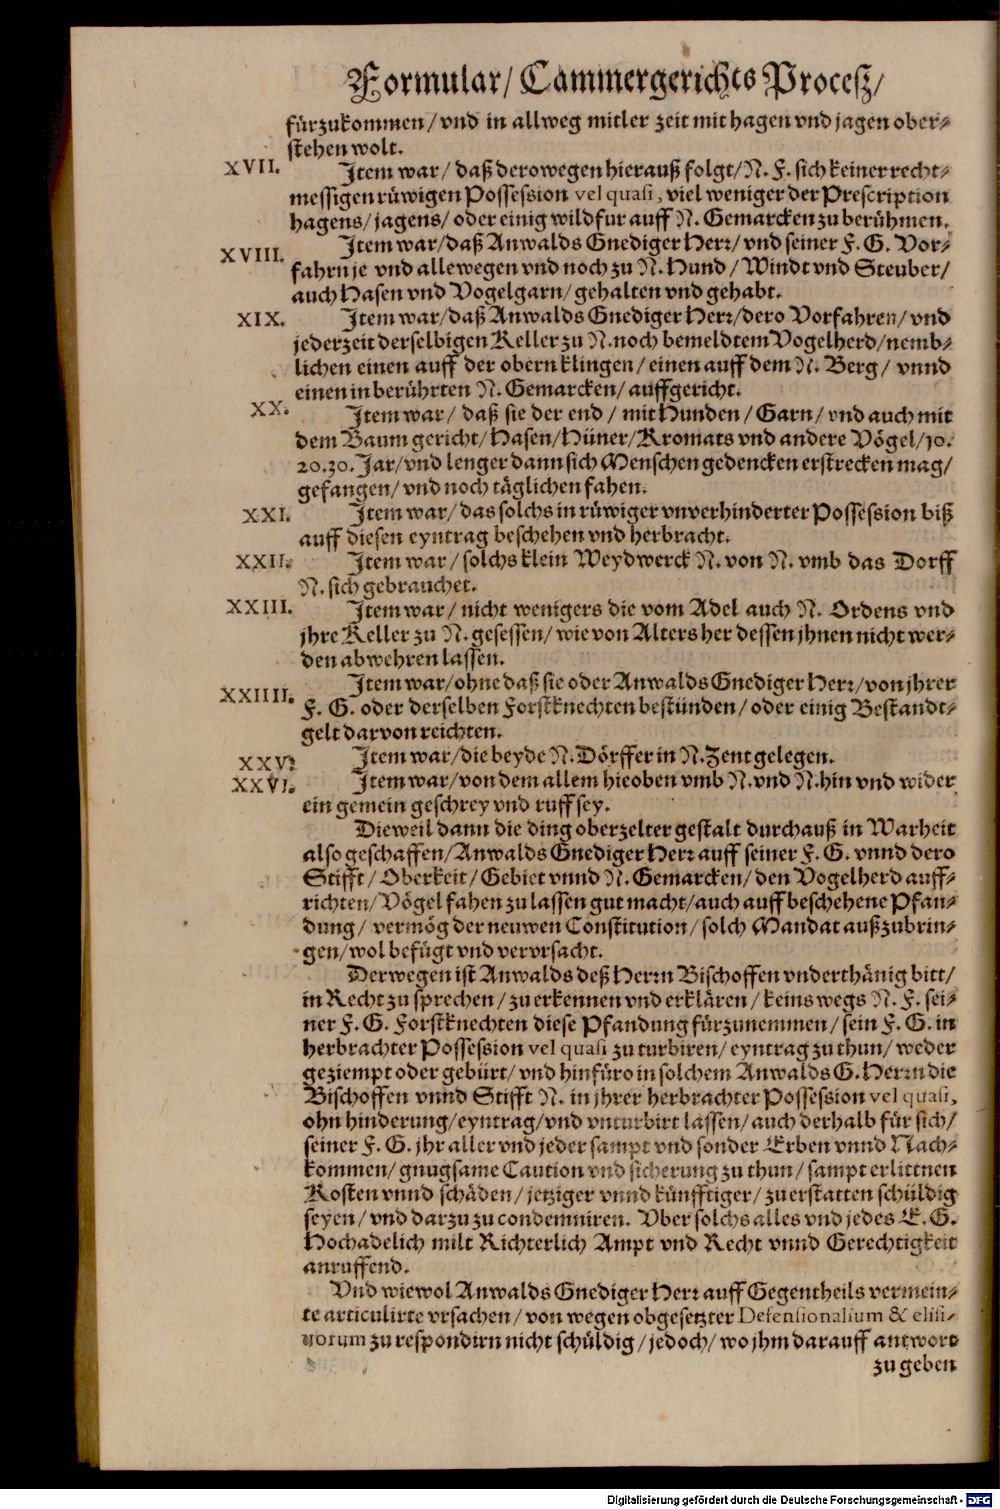 Formular/ Cammergerichts Proceß/
fürzukommen/ vnd in allweg mitler zeit mit hagen vnd jagen ober-
stehen wolt.
XVII. Item war/ daß derowegen hierauß folgt/ N. F. sich keiner recht-
messigen rüwigen Possession vel quasi, viel weniger der Prescription
hagens/ jagens/ oder einig wildfur auff N. Gemarcken zu berühmen.
XVIII. Item war/ daß Anwalds Gnediger Herr/ vnd seiner F. G. Vor-
fahrn je vnd allewegen vnd noch zu N. Hund/ Windt vnd Steuber/
auch Hasen vnd Vogelgarn/ gehalten vnd gehabt.
XIX. Item war/ daß Anwalds Gnediger Herr/ dero Vorfahren/ vnd
jederzeit derselbigen Keller zu N. noch bemeldtem Vogelherd/ nemb-
lichen einen auff der obern klingen/ einen auff dem N. Berg/ vnnd
einen in berührten N. Gemarcken/ auffgericht.
XX. Item war/ daß sie der end/ mit Hunden/ Garn/ vnd auch mit
dem Baum gericht/ Hasen/ Hüner/ Kromats vnd andere Vögel/ 10.
20. 30. Jar/ vnd lenger dann sich Menschen gedencken erstrecken mag/
gefangen/ vnd noch täglichen fahen.
XXI. Item war/ das solchs in rüwiger vnverhinderter Possession biß
auff diesen eyntrag beschehen vnd herbracht.
XXII. Item war/ solchs klein Weydwerck N. von N. vmb das Dorff
N. sich gebrauchet.
XXIII. Item war/ nicht wenigers die vom Adel auch N. Ordens vnd
jhre Keller zu N. gesessen/ wie von Alters her dessen jhnen nicht wer-
den abwehren lassen.
XXIIII. Item war/ ohne daß sie oder Anwalds Gnediger Herr/ von jhrer
F. G. oder derselben Forstknechten bestünden/ oder einig Bestandt-
gelt darvon reichten.
XXV. Item war/ die beyde N. Dörffer in N. Zent gelegen.
XXVI. Item war/ von dem allem hieoben vmb N. vnd N. hin vnd wider
ein gemein geschrey vnd ruff sey.
Dieweil dann die ding oberzelter gestalt durchauß in Warheit
also geschaffen/ Anwalds Gnediger Herr auff seiner F. G. vnnd dero
Stifft/ Oberkeit/ Gebiet vnnd N. Gemarcken/ den Vogelherd auff-
richten/ Vögel fahen zu lassen gut macht/ auch auff beschehene Pfan-
dung/ vermög der neuwen Constitution/ solch Mandat außzubrin-
gen/ wol befügt vnd vervrsacht.
Derwegen ist Anwalds deß Herrn Bischoffen vnderthänig bitt/
in Recht zu sprechen/ zu erkennen vnd erklären/ keins wegs N. F. sei-
ner F. G. Forstknechten diese Pfandung fürzunemmen/ sein F. G. in
herbrachter Possession vel quasi zu turbiren/ eyntrag zu thun/ weder
geziempt oder gebürt/ vnd hinfüro in solchem Anwalds G. Herrn die
Bischoffen vnnd Stifft N. in jhrer herbrachter Possession vel quasi,
ohn hinderung/ eyntrag/ vnd vnturbirt lassen/ auch derhalb für sich/
seiner F. G. jhr aller vnd jeder sampt vnd sonder Erben vnnd Nach-
kommen/ gnugsame Caution vnd sicherung zu thun/ sampt erlittnen
Kosten vnnd schäden/ jetziger vnnd künfftiger/ zu erstatten schüldig
seyen/ vnd darzu zu condemniren. Vber solchs alles vnd jedes E. G.
Hochadelich milt Richterlich Ampt vnd Recht vnnd Gerechtigkeit
anruffend.
Vnd wiewol Anwalds Gnediger Herr auff Gegentheils vermein-
te articulirte vrsachen/ von wegen obgesetzter Defensionalium & elisi-
uorum zu respondirn nicht schüldig/ jedoch/ wo jhm darauff antwort
zu geben
Digitalisierung gefördert durch die Deutsche Forschungsgemeinschaft - DFG